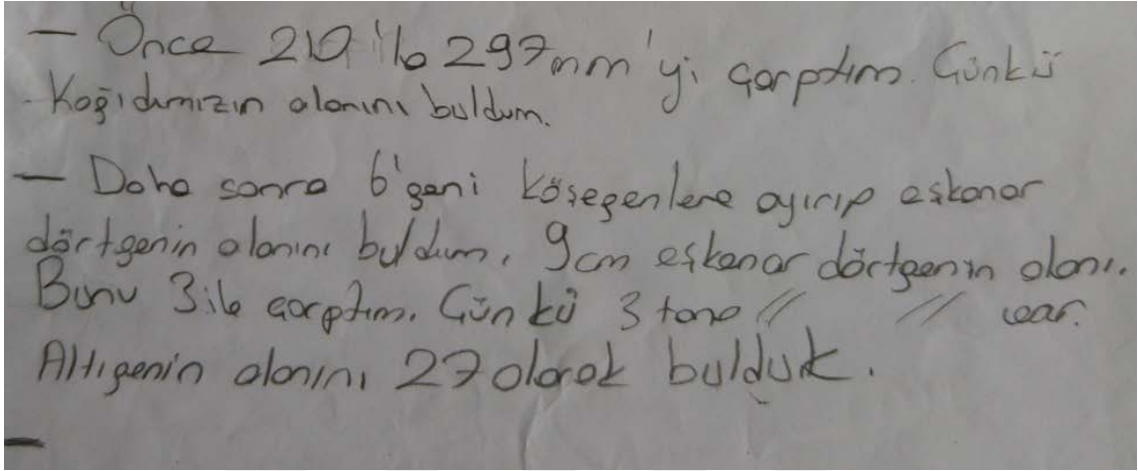 - Önce 210 'la 297mm'yi çarptım. Çünkü
Kağıdımızın alanını buldum.
- Daha sonra 6'geni köşegenlere ayırıp eşkenar
dörtgenin alanını buldum. 9cm eşkenar dörtgenin alanı.
Bunu 3 ile çarptım. Çünkü 3 tane // // var.
Altıgenin alanını 27 olarak bulduk.
-